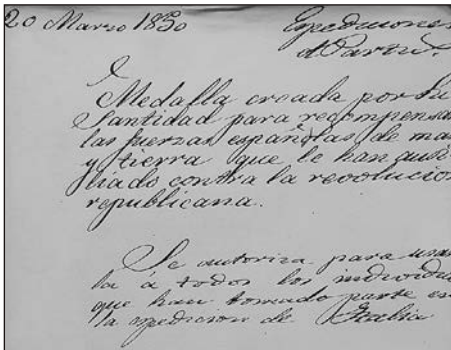 20 Marzo 1850
Espediciones
Medalla creada por Su
Santidad para recompensa
las fuerzas españolas de ma
y tierra que le han ausi
liado contra la revolucio
republicana.
Se autoriza para usa
la á todos los individu
que han tomado parte en
la espedicion de Italia